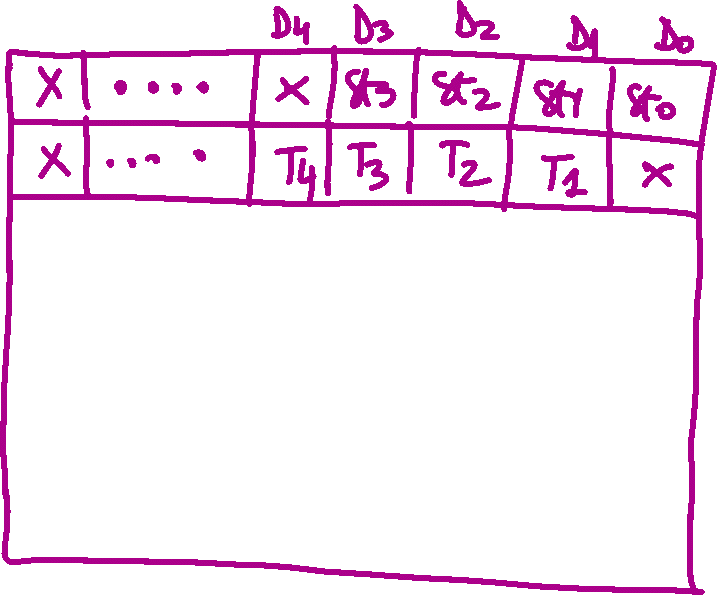 D4 D3 D2 D1 D0
X .... X St3 St2 St1 St0
X .... T4 T3 T2 T1 X